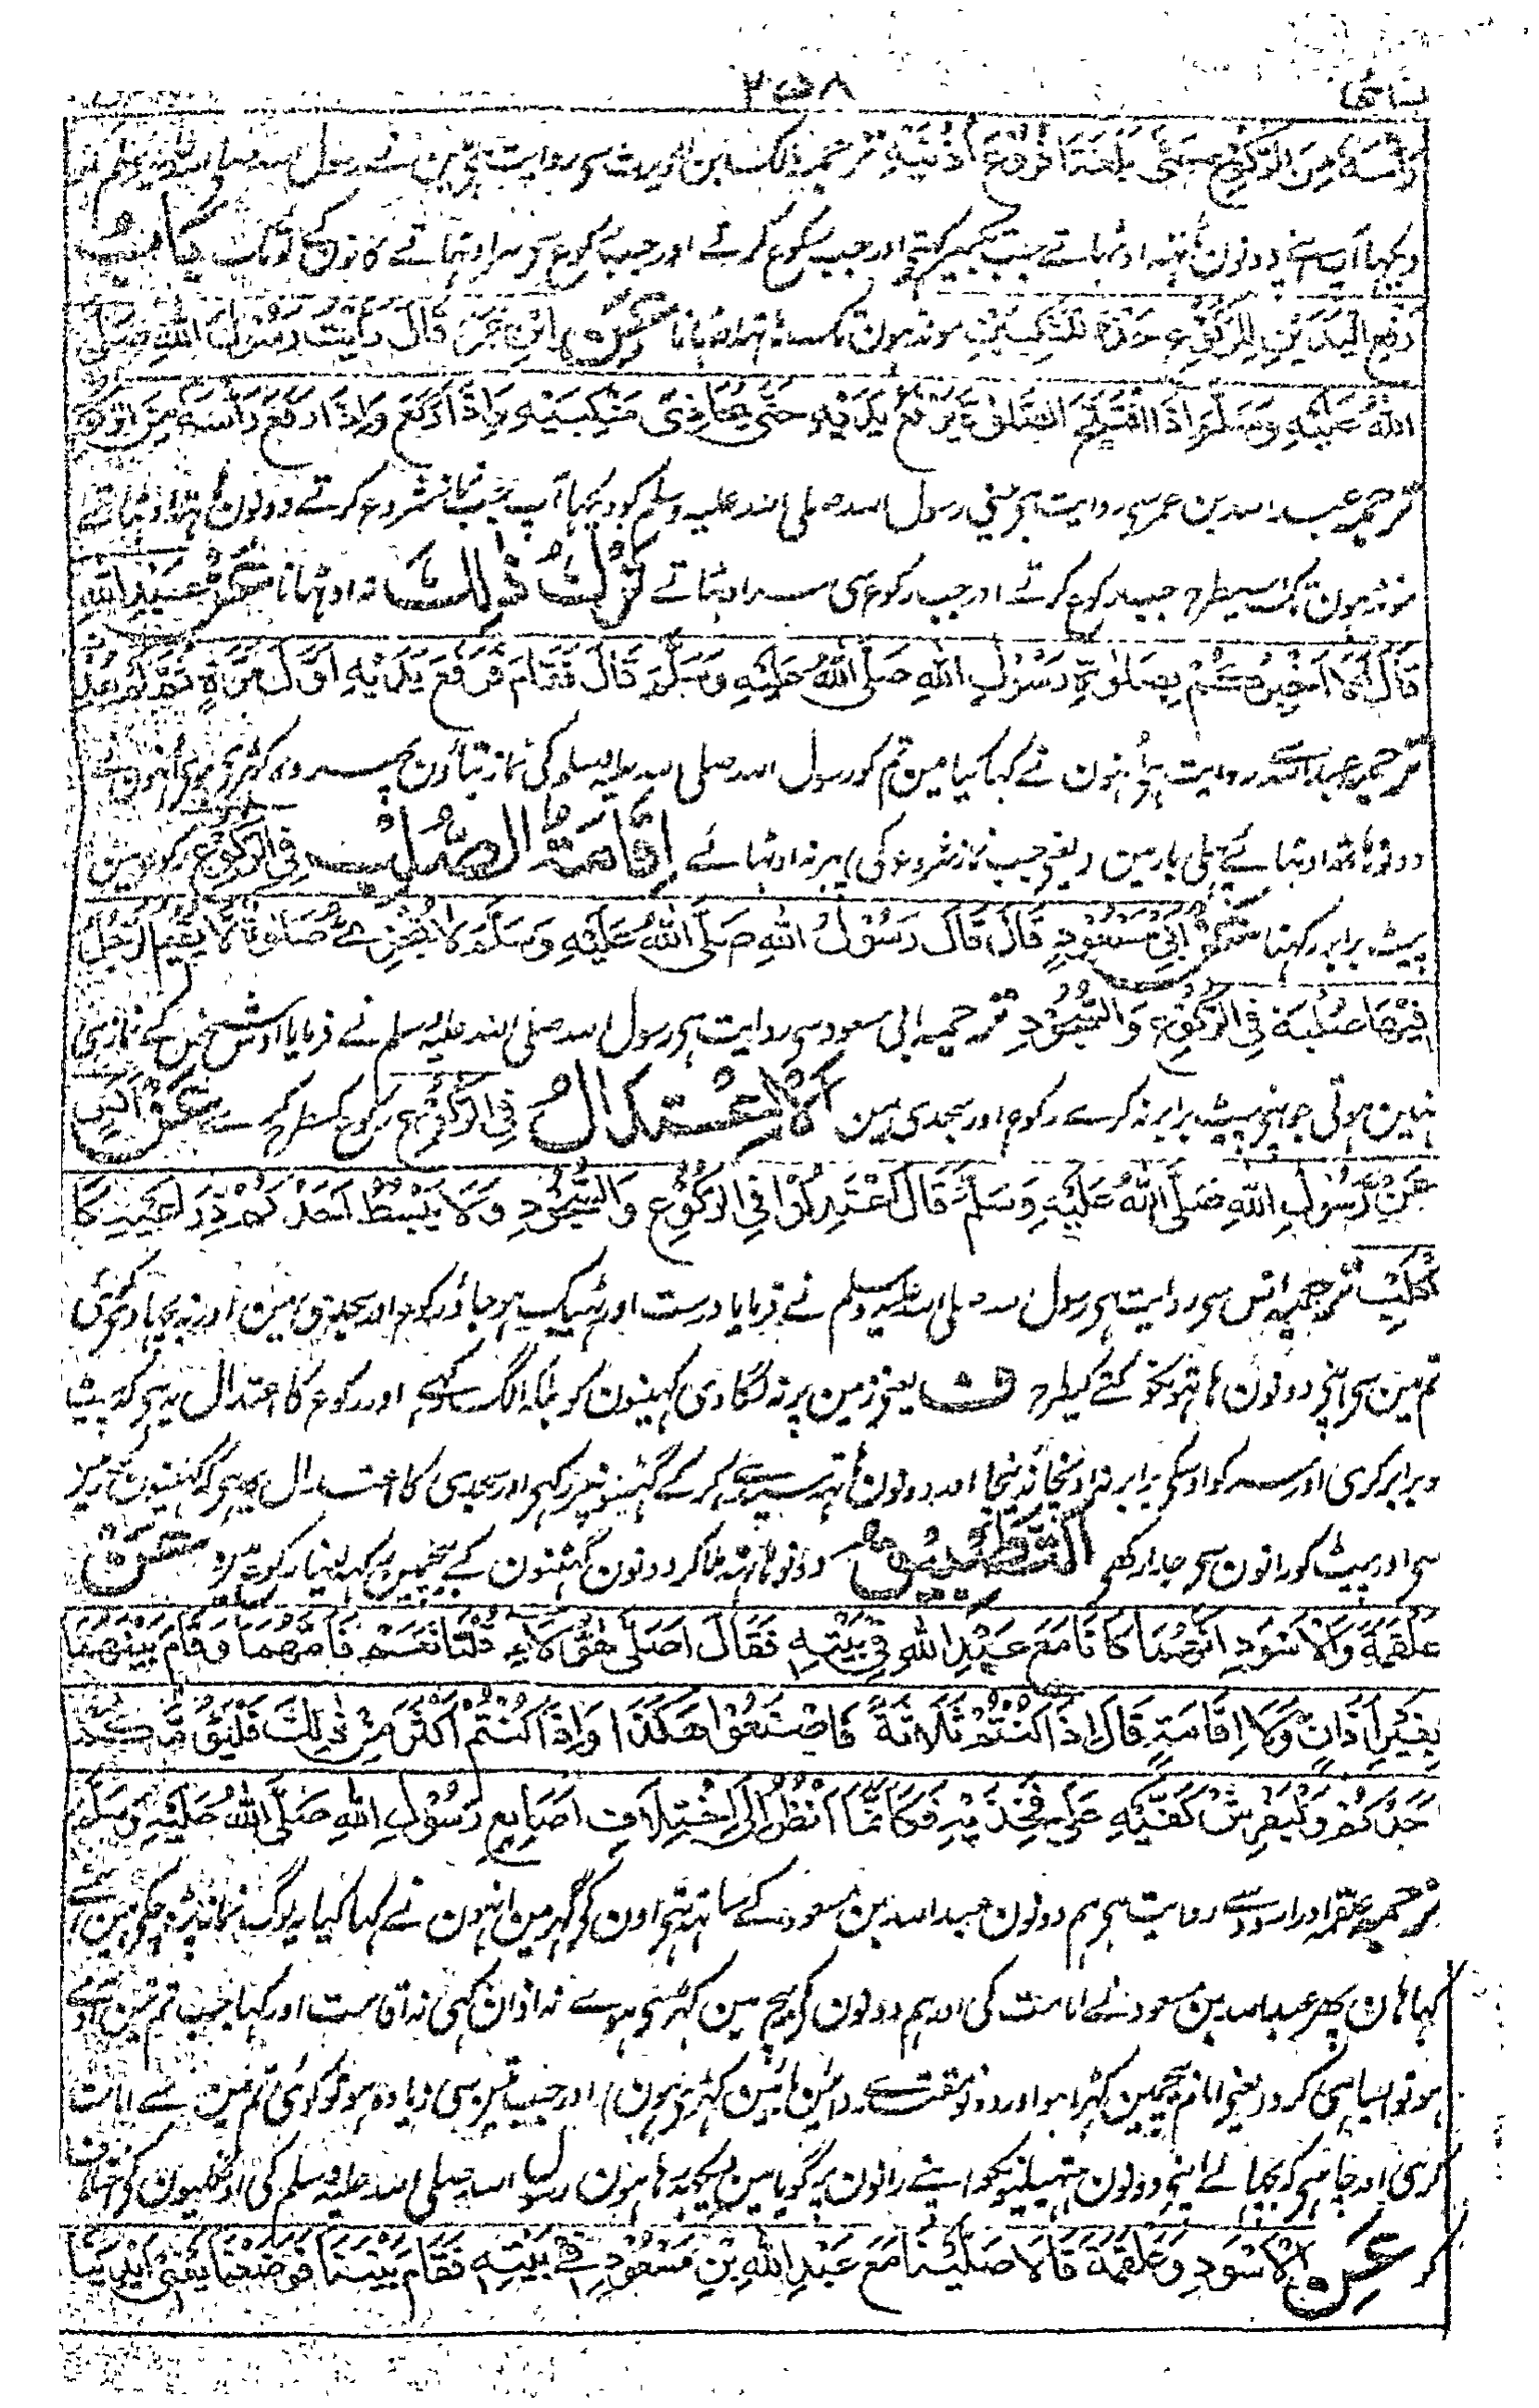 ۲۵۸
رَأْسَهٗ مِنَ الرُّكُوْعِ حَتّٰى بَلَغَتَا فُرُوْعَ اُذُنَيْهِ ترجمہ مالک بن الحویرث سی روایت ہی مین نے رسول اللہ صلی اللہ علیہ وسلم کو
دیکھا آپ اپنے دونون ہاتھ اوٹہاتے جب تکبیر کہتے اور جب رکوع کرتے اور جب رکوع سی سر اوٹہاتے کانون کی لو تک بَابُ
رَفْعِ الْيَدَيْنِ لِلرُّكُوْعِ حَذْوَ الْمَنْكِبَيْنِ مونڈہون تک ہاتھ اوٹہانا عَنِ ابْنِ عُمَرَ قَالَ رَاَيْتُ رَسُوْلَ اللهِ صَلَّى
اللهُ عَلَيْهِ وَسَلَّمَ اِذَا افْتَتَحَ الصَّلٰوةَ يَرْفَعُ يَدَيْهِ حَتّٰى يُحَاذِىَ مَنْكِبَيْهِ وَاِذَا رَكَعَ وَاِذَا رَفَعَ رَاْسَهٗ مِنَ الرُّكُوْعِ
ترجمہ عبد اللہ بن عمر سی روایت ہی مینی رسول اللہ صلی اللہ علیہ وسلم کو دیکہا آپ جب نماز شروع کرتے دونون ہاتھ اوٹہاتے
مونڈہون تک اسیطرح جب رکوع کرتے اور جب رکوع سی سر اوٹہاتے تَرْكُ ذٰلِكَ نہ اوٹہانا عَنْ عَبْدِ اللهِ
قَالَ اَلَا اُخْبِرُكُمْ بِصَلٰوةِ رَسُوْلِ اللهِ صَلَّى اللهُ عَلَيْهِ وَسَلَّمَ قَالَ فَقَامَ فَرَفَعَ يَدَيْهِ اَوَّلَ مَرَّةٍ ثُمَّ لَمْ يُعِدْ
ترجمہ عبد اللہ سے روایت ہی اُنہون نے کہا کیا مین تم کو رسول اللہ صلی اللہ علیہ وسلم کی نماز بتاؤن پھر وہ کہڑی ہوئی اُنہون نے
دونو ہاتھ اوٹہائے پہلی بار مین (یعنی جب نماز شروع کی) پہر نہ اوٹہائے اِقَامَةُ الصُّلْبِ فِى الرُّكُوْعِ رکوع مین
پیٹھ برابر رکہنا عَنْ اَبِىْ مَسْعُوْدٍ قَالَ قَالَ رَسُوْلُ اللهِ صَلَّى اللهُ عَلَيْهِ وَسَلَّمَ لَا تُجْزِئُ صَلٰوةٌ لَا يُقِيْمُ الرَّجُلُ
فِيْهَا صُلْبَهٗ فِى الرُّكُوْعِ وَالسُّجُوْدِ ترجمہ ابی مسعود سی روایت ہی رسول اللہ صلی اللہ علیہ وسلم نے فرمایا اوس شخص کے نماز صحیح
نہین ہوتی جو اپنی پیٹھ برابر نہ کرے رکوع اور سجدی مین اَلْاِعْتِدَالُ فِى الرُّكُوْعِ رکوع کسطرح کرے عَنْ اَنَسٍ
عَنْ رَسُوْلِ اللهِ صَلَّى اللهُ عَلَيْهِ وَسَلَّمَ قَالَ اعْتَدِلُوْا فِى الرُّكُوْعِ وَالسُّجُوْدِ وَلَا يَبْسُطْ اَحَدُكُمْ ذِرَاعَيْهِ كَا
لْكَلْبِ ترجمہ انس سی روایت ہی رسول اللہ صلی اللہ علیہ وسلم نے فرمایا درست اور ٹھیک ہو جاؤ رکوع اور سجدی مین اور نہ بچھاوی کوئی
تم مین سی اپنی دونون ہاتہونکو کتے کیطرح ف یعنی زمین پر نہ لگاوی کہنیون کو بلکہ الگ رکہے اور رکوع کا اعتدال یہ ہی کہ پیٹھ
برابر کری اور سر کو اوسکی برابر نہ اونچا نہ نیچا اور دونون ہاتھ سیدہے کر کے گہٹنونپر رکہی اور سجدی کا اعتدال یہ ہی کہ کہنیون کو زمین
سی اور پیٹ کو رانون سی جدا رکھی التَّطْبِيْقُ دونو ہاتھ ملا کر دونون گہٹنون کے بیچمین رکہہ لینا رکوع مین عَنْ
عَلْقَمَةَ وَالْاَسْوَدِ اَنَّهُمَا كَانَا مَعَ عَبْدِ اللهِ فِىْ بَيْتِهٖ فَقَالَ اَصَلّٰى هٰؤُلَاءِ قُلْنَا نَعَمْ فَاَمَّهُمَا وَقَامَ بَيْنَهُمَا
بِغَيْرِ اَذَانٍ وَّلَا اِقَامَةٍ قَالَ اِذَا كُنْتُمْ ثَلَاثَةً فَاصْنَعُوْا هٰكَذَا وَاِذَا كُنْتُمْ اَكْثَرَ مِنْ ذٰلِكَ فَلْيَؤُمَّكُمْ
اَحَدُكُمْ وَلْيَفْرِشْ كَفَّيْهِ عَلٰى فَخِذَيْهِ فَكَاَنَّمَا اَنْظُرُ اِلَى اخْتِلَافِ اَصَابِعِ رَسُوْلِ اللهِ صَلَّى اللهُ عَلَيْهِ وَسَلَّمَ
ترجمہ علقمہ اور اسود سے روایت ہی ہم دونون عبد اللہ بن مسعود کے ساتھ تہی اون کی گہر مین انہون نے کہا کیا یہ لوگ نماز پڑہ چکی ہین ہمنے
کہا ہان پہر عبد اللہ بن مسعود نے امامت کی اور ہم دونون کی بیچ مین کہڑی ہوے نہ اذان کہی نہ اقامت اور کہا جب تم تین آدمی
ہو تو ایسا ہی کرو (یعنی امام بیچمین کہڑا ہو اور دونو مقتدی دائین بائین کہڑی ہون) اور جب تین سی زیادہ ہو تو کوئی تم مین سے امامت
کری اور چاہیے کہ بچھا لے اپنی دونون ہتہیلیونکو اپنے رانون پر گویا مین دیکہہ رہا ہون رسول اللہ صلی اللہ علیہ وسلم کی اونگلیون کو اختلاف
کر عَنِ الْاَسْوَدِ وَعَلْقَمَةَ قَالَا صَلَّيْنَا مَعَ عَبْدِ اللهِ بْنِ مَسْعُوْدٍ فِىْ بَيْتِهٖ فَقَامَ بَيْنَنَا فَوَضَعْنَا